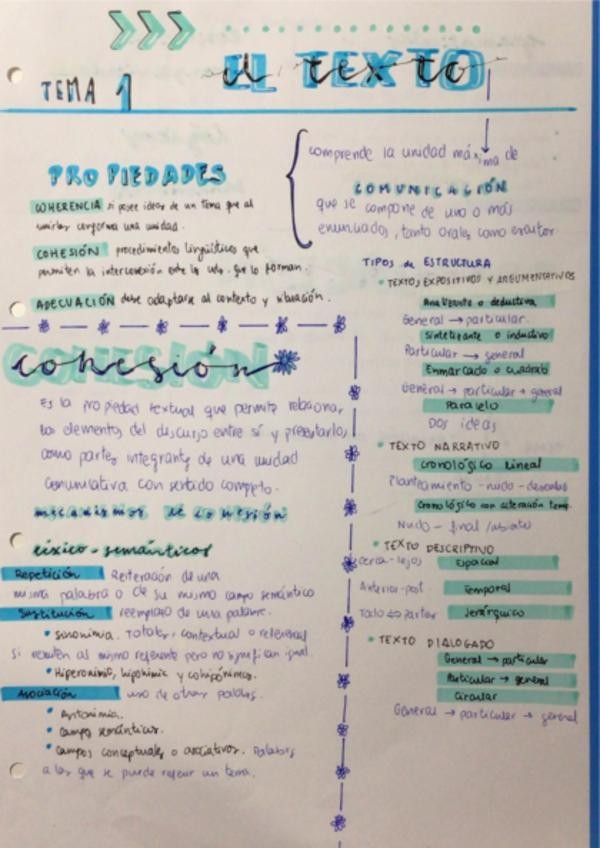 TEMA 1
EL TEXTO
el texto
comprende la unidad máxima de
COMUNICACIÓN
que se compone de uno o más
enunciados, tanto orales como escritor
PROPIEDADES
COHERENCIA si posee ideas de un tema que al
unirlas conforma una unidad.
COHESIÓN procedimientos lingüísticos que
permiten la interconexión entre las uds. que lo forman.
ADECUACIÓN debe adaptarse al contexto y situación.
COHESIÓN
cohesión
Es la propiedad textual que permite relacionar
los elementos del discurso entre sí y presentarlos
como partes integrante de una unidad
comunicativa con sentido completo.
mecanismos de cohesión
léxico-semánticos
Repetición Reiteración de una
misma palabra o de su mismo campo semántico
Sustitución reemplazo de una palabra.
• sinonimia. Total, contextual o referencial
si remiten al mismo referente pero no significan igual.
• Hiperonimia, hiponimia y cohiponimia.
Asociación uso de otras palabras.
• Antonimia.
• campos semánticos.
• campos conceptuales o asociativos. Palabras
a las que se puede referir un tema.
TIPOS de ESTRUCTURA
• TEXTOS EXPOSITIVOS Y ARGUMENTATIVOS
Analizante o deductiva
General → particular.
Sintetizante o inductivo
Particular → general
Enmarcado o cuadrado
General → particular → general
Paralelo
Dos ideas
• TEXTO NARRATIVO
cronológico lineal
Planteamiento - nudo - desenlace
Cronológico con alteración temp.
Nudo - final /abierto
• TEXTO DESCRIPTIVO
cerca-lejos Espacial
Anterior-post. Temporal
Todo ↔ partes Jerárquico
• TEXTO DIALOGADO
General → particular
Particular → general
Circular
General → particular → general